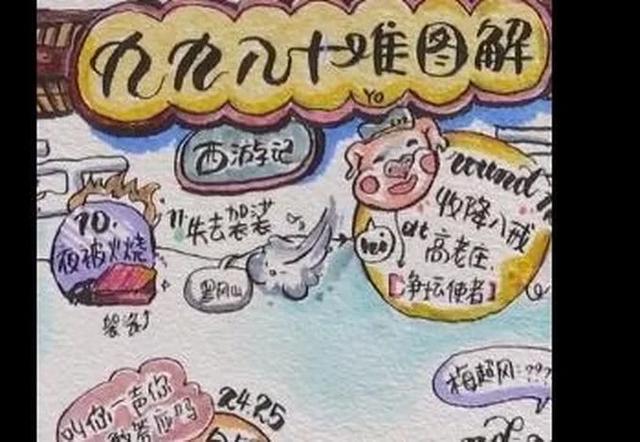 九九八十难图解
YO
西游记
10.
夜被火烧
袈裟
11.
失去袈裟
黑风山
round
收降八戒
at 高老庄.
【净坛使者】
梅超风:???
叫你一声你
敢答应吗
24.25